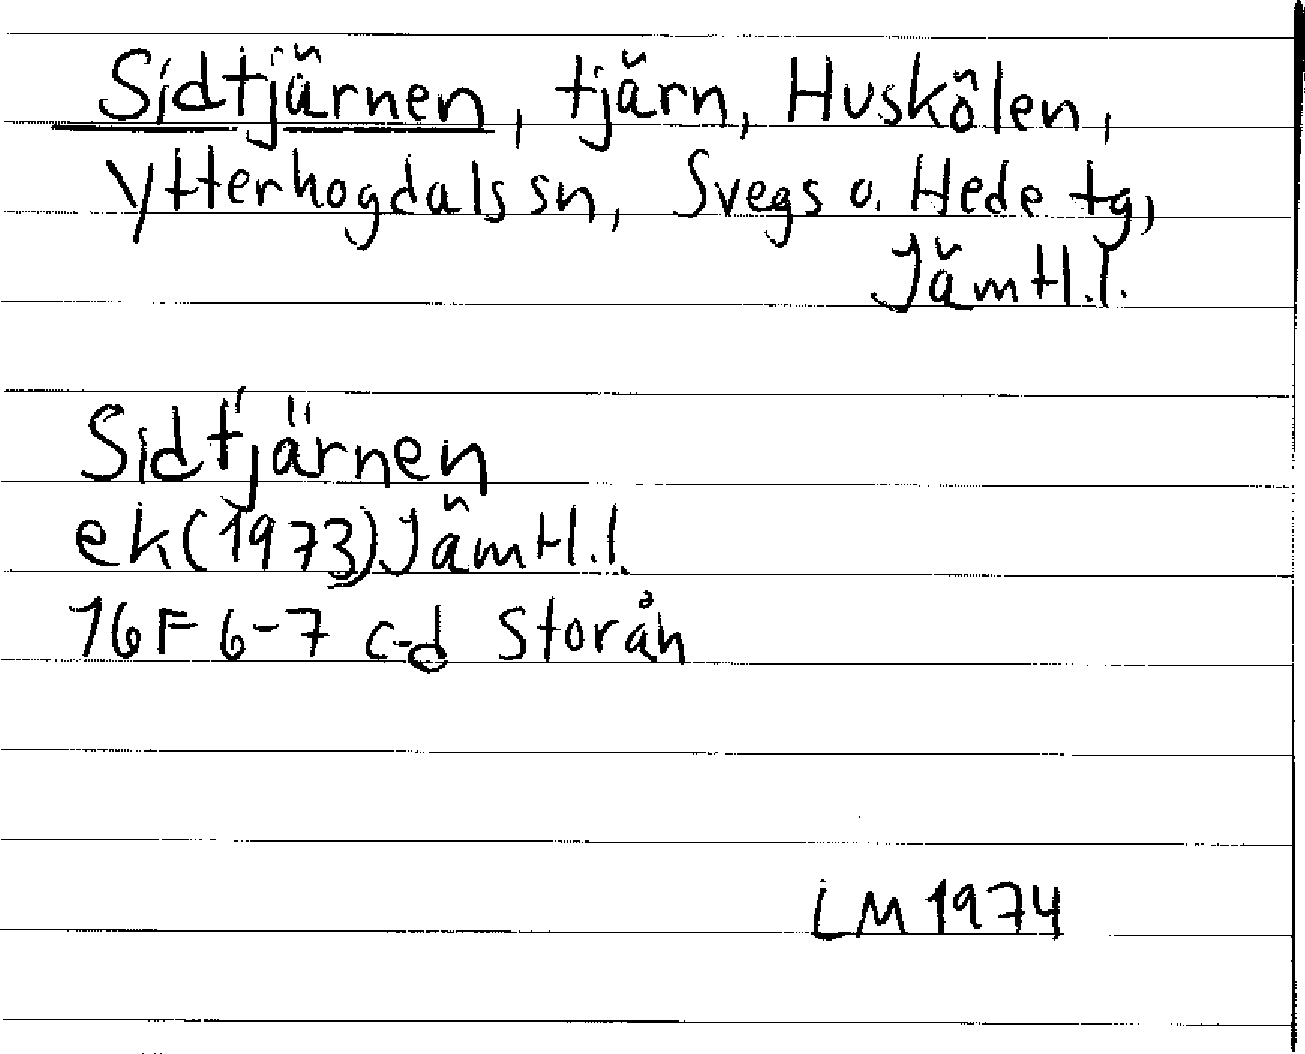 Sidtjärnen, tjärn, Huskölen,
Ytterhogdals sn, Svegs o. Hede tg,
Jämtl.l.
Sidtjärnen
ek (1973) Jämtl.l.
16F 6-7 c-d Storån
LM 1974